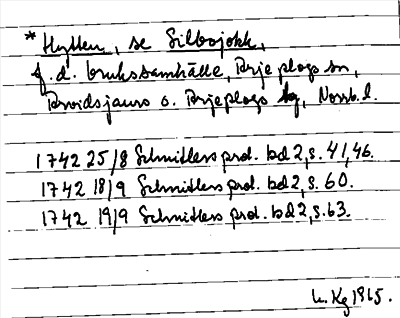 * Hytten, se Silbojokk,
f. d. brukssamhälle, Arjeplogs sn,
Arvidsjaurs o. Arjeplogs tg, Norrb. l.
1742 25/8 Schnitlers prot. bd 2, s. 41, 46.
1742 18/9 Schnitlers prot. bd 2, s. 60.
1742 19/9 Schnitlers prot. bd 2, s. 63.
Kg 1965.